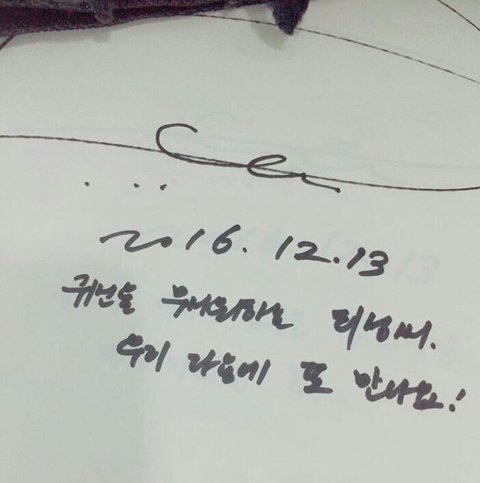 2016. 12. 13
귀신을 무서워하는
우리 다음에 또 만나요!